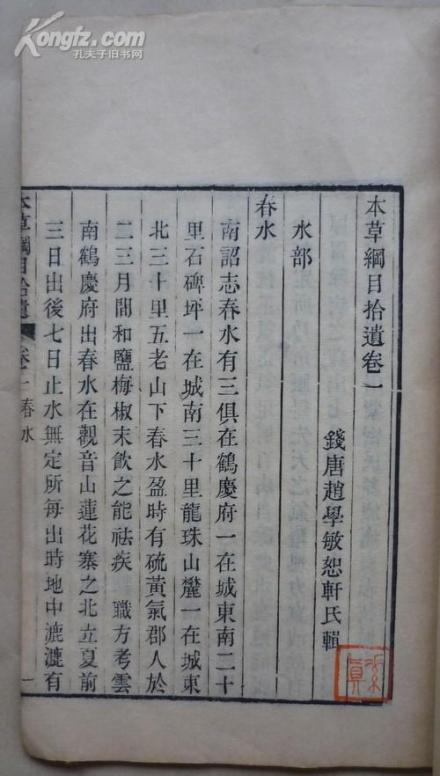 Kongfz.com
孔夫子旧书网
本草綱目拾遺卷一
錢唐趙學敏恕軒氏輯
水部
春水
南詔志春水有三俱在鶴慶府一在城東南二十
里石碑坪一在城南三十里龍珠山麓一在城東
北三十里五老山下春水盈時有硫黃氣郡人於
二三月間和鹽梅椒末飲之能祛疾 職方考雲
南鶴慶府出春水在觀音山蓮花寨之北立夏前
三日出後七日止水無定所每出時地中漉漉有
本草綱目拾遺 卷一 春水 一